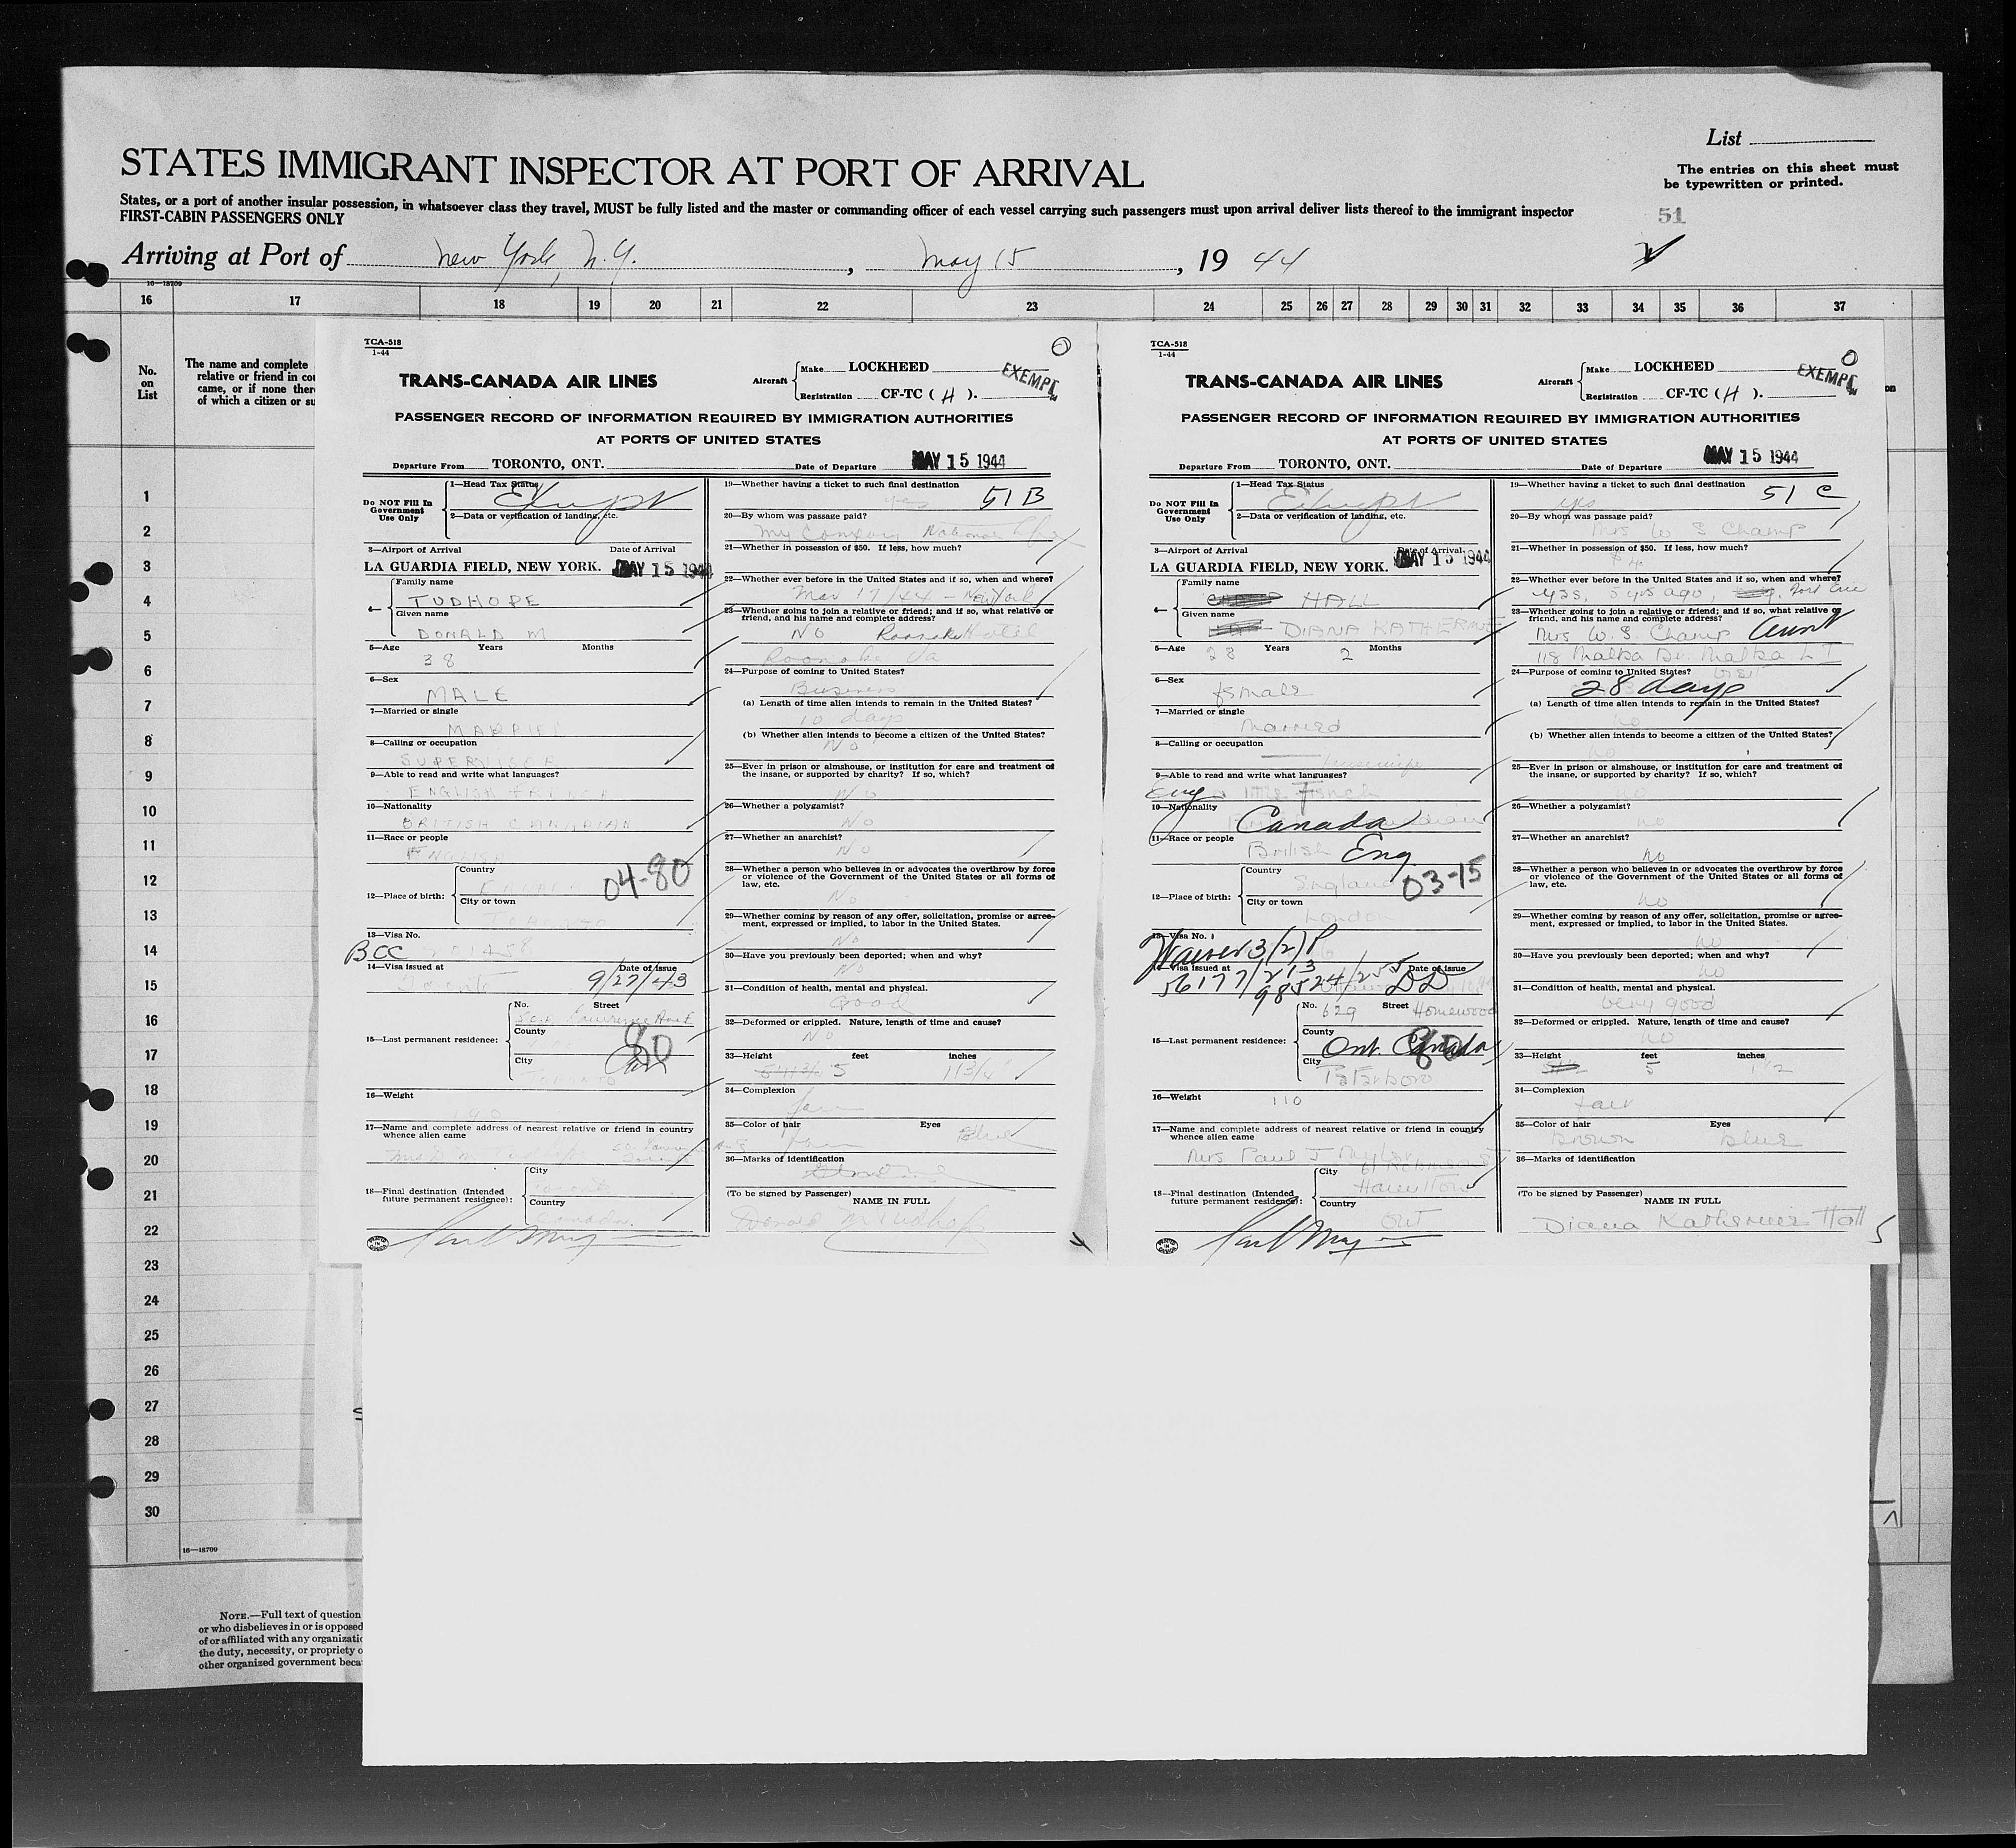 List
STATES IMMIGRANT INSPECTOR AT PORT OF ARRIVAL
The entries on this sheet must
be typewritten or printed.
States, or a port of another insular possession, in whatsoever class they travel, MUST be fully listed and the master or commanding officer of each vessel carrying such passengers must upon arrival deliver lists thereof to the immigrant inspector
FIRST-CABIN PASSENGERS ONLY
51
Arriving at Port of New York, N.Y., May 15, 19 44
16—18709
16 17 18 19 20 21 22 23 24 25 26 27 28 29 30 31 32 33 34 35 36 37
No.
on
List
The name and complete
relative or friend in cou
came, or if none there
of which a citizen or su
1
2
3
4
5
6
7
8
9
10
11
12
13
14
15
16
17
18
19
20
21
22
23
24
25
26
27
28
29
30
16—18709
NOTE.—Full text of question
or who disbelieves in or is opposed
of or affiliated with any organizatio
the duty, necessity, or propriety o
other organized government beca
TCA-518
1-44
TRANS-CANADA AIR LINES
Aircraft
Make LOCKHEED
Registration CF-TC ( H ).
EXEMPT
PASSENGER RECORD OF INFORMATION REQUIRED BY IMMIGRATION AUTHORITIES
AT PORTS OF UNITED STATES
Departure From TORONTO, ONT. Date of Departure MAY 15 1944
Do NOT Fill In
Government
Use Only
1—Head Tax Status
Exempt
2—Data or verification of landing, etc.
3—Airport of Arrival Date of Arrival
LA GUARDIA FIELD, NEW YORK. MAY 15 1944
4—
Family name
TUDHOPE
Given name
DONALD M
5—Age Years Months
38
6—Sex
MALE
7—Married or single
MARRIED
8—Calling or occupation
SUPERVISOR
9—Able to read and write what languages?
ENGLISH FRENCH
10—Nationality
BRITISH CANADIAN
11—Race or people
ENGLISH
12—Place of birth:
Country
04-80
City or town
TORONTO
13—Visa No.
BCC
14—Visa issued at Date of Issue
Toronto 9/27/43
15—Last permanent residence:
No. Street
Lawrence Ave E
County
80
City
Can
TORONTO
16—Weight
190
17—Name and complete address of nearest relative or friend in country
whence alien came
18—Final destination (Intended
future permanent residence):
City
Toronto
Country
Canada
19—Whether having a ticket to such final destination
yes 51 B
20—By whom was passage paid?
My Company National
21—Whether in possession of $50. If less, how much?
22—Whether ever before in the United States and if so, when and where?
Mar 17/44 - New York
23—Whether going to join a relative or friend; and if so, what relative or
friend, and his name and complete address?
No Roanoke Hotel
Roanoke Va
24—Purpose of coming to United States?
Business
(a) Length of time alien intends to remain in the United States?
10 days
(b) Whether alien intends to become a citizen of the United States?
No
25—Ever in prison or almshouse, or institution for care and treatment of
the insane, or supported by charity? If so, which?
No
26—Whether a polygamist?
No
27—Whether an anarchist?
No
28—Whether a person who believes in or advocates the overthrow by force
or violence of the Government of the United States or all forms of
law, etc.
No
29—Whether coming by reason of any offer, solicitation, promise or agree-
ment, expressed or implied, to labor in the United States.
No
30—Have you previously been deported; when and why?
No
31—Condition of health, mental and physical.
Good
32—Deformed or crippled. Nature, length of time and cause?
No
33—Height feet inches
5 11 3/4
34—Complexion
fair
35—Color of hair Eyes
fair Blue
36—Marks of identification
(To be signed by Passenger) NAME IN FULL
Donald M Tudhope
TCA-518
1-44
TRANS-CANADA AIR LINES
Aircraft
Make LOCKHEED
Registration CF-TC ( H ).
EXEMPT
PASSENGER RECORD OF INFORMATION REQUIRED BY IMMIGRATION AUTHORITIES
AT PORTS OF UNITED STATES
Departure From TORONTO, ONT. Date of Departure MAY 15 1944
Do NOT Fill In
Government
Use Only
1—Head Tax Status
Exempt
2—Data or verification of landing, etc.
3—Airport of Arrival Date of Arrival
LA GUARDIA FIELD, NEW YORK. MAY 15 1944
Family name
HALL
Given name
DIANA KATHERINE
5—Age Years Months
28 2
6—Sex
female
7—Married or single
Married
8—Calling or occupation
housewife
9—Able to read and write what languages?
Eng little French
10—Nationality
Canada
11—Race or people
British Eng
12—Place of birth:
Country
England 03-15
City or town
London
13—Visa No.
Waiver 3(2) P
14—Visa issued at Date of Issue
56177/213
98524/255 DD
15—Last permanent residence:
No. 629 Street Homewood
County
Ont. Canada
80
City
Peterboro
16—Weight 110
17—Name and complete address of nearest relative or friend in country
whence alien came
Mrs Paul J
18—Final destination (Intended
future permanent residence):
City
Hamilton
Country
Ont
19—Whether having a ticket to such final destination
yes 51 C
20—By whom was passage paid?
Mrs W S Champ
21—Whether in possession of $50. If less, how much?
22—Whether ever before in the United States and if so, when and where?
yes, 5 yrs ago, Fort Erie
23—Whether going to join a relative or friend; and if so, what relative or
friend, and his name and complete address?
Mrs W. S. Champ Aunt
118 Malba Dr. Malba L I
24—Purpose of coming to United States? visit
28 days
(a) Length of time alien intends to remain in the United States?
no
(b) Whether alien intends to become a citizen of the United States?
no
25—Ever in prison or almshouse, or institution for care and treatment of
the insane, or supported by charity? If so, which?
no
26—Whether a polygamist?
no
27—Whether an anarchist?
no
28—Whether a person who believes in or advocates the overthrow by force
or violence of the Government of the United States or all forms of
law, etc.
no
29—Whether coming by reason of any offer, solicitation, promise or agree-
ment, expressed or implied, to labor in the United States.
no
30—Have you previously been deported; when and why?
no
31—Condition of health, mental and physical.
very good
32—Deformed or crippled. Nature, length of time and cause?
no
33—Height feet inches
5 1 1/2
34—Complexion
fair
35—Color of hair Eyes
Brown blue
36—Marks of identification
(To be signed by Passenger) NAME IN FULL
Diana Katherine Hall